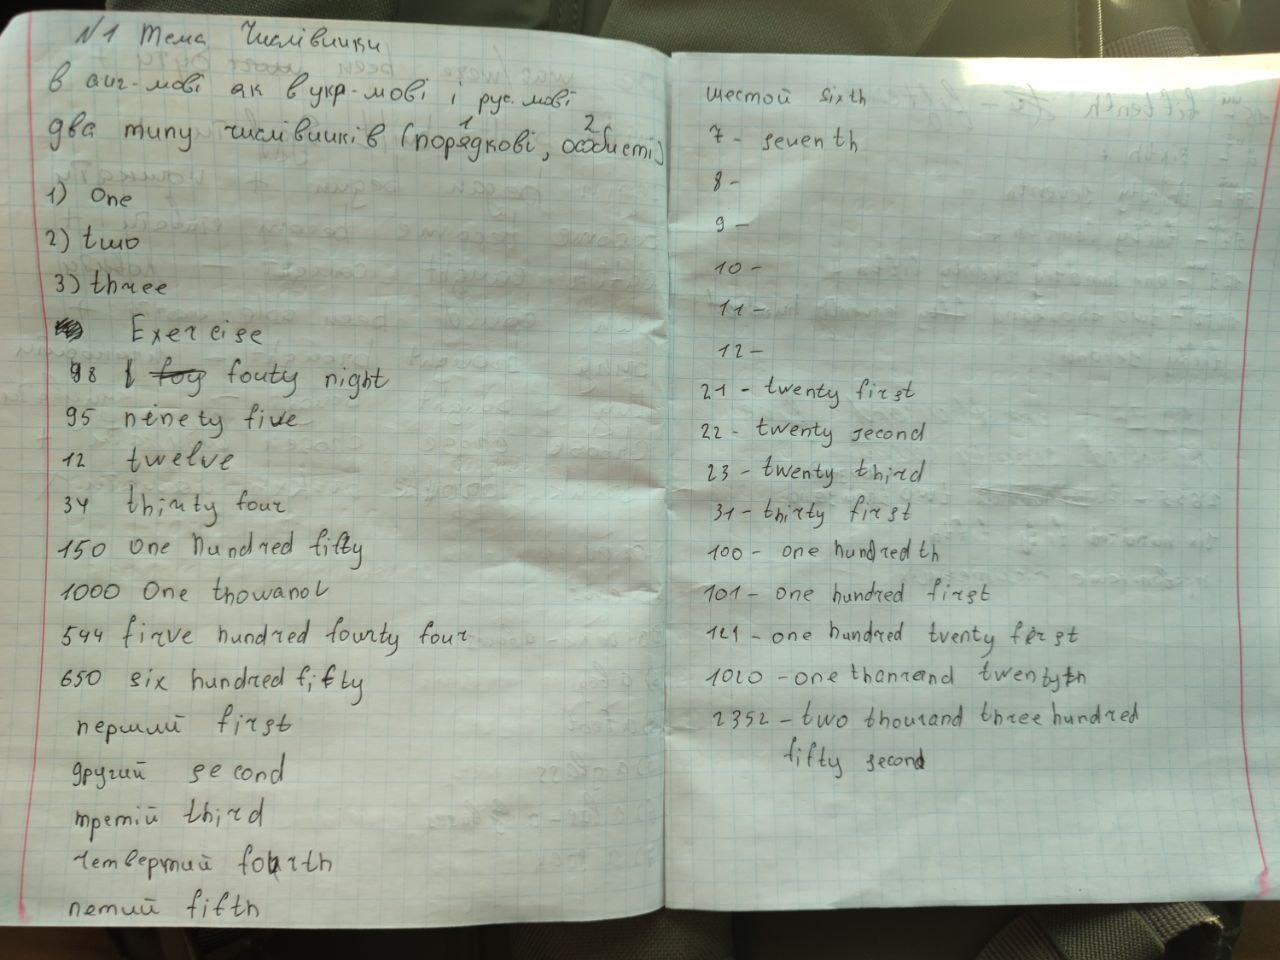 N1 Тема Числівники
В анг-мові як в укр-мові і рус. мові
два типу числівників (порядкові, особисті)
1 2
1) One
2) two
3) three
Exercise
98 fouty night
95 ninety five
12 twelve
34 thirty four
150 One hundred fifty
1000 One thowand
544 firve hundred fourty four
650 six hundred fifty
перший first
другий second
третій third
четвертий fourth
петий fifth
шестой sixth
7 - seventh
8 -
9 -
10 -
11 -
12 -
21 - twenty first
22 - twenty second
23 - twenty third
31 - thirty first
100 - one hundredth
101 - one hundred first
121 - one hundred tventy first
1020 - one thanrand twentyth
2352 - two thourand three hundred
fifty second